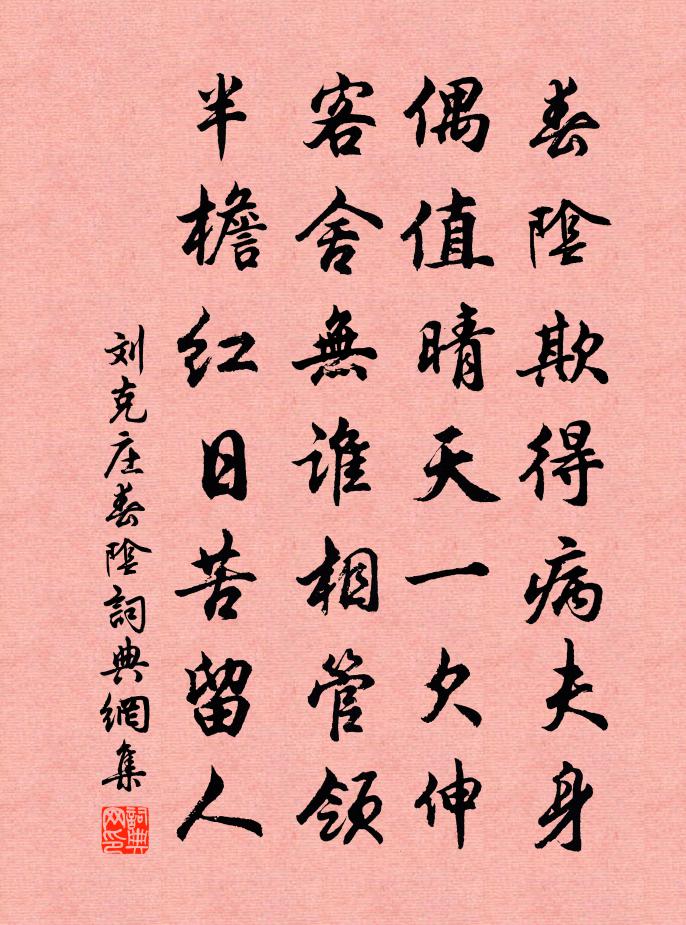 春陰欺得病夫身
偶值晴天一欠伸
客舍無誰相管領
半檐红日苦留人
刘克庄春陰詞典網集
詞典网印